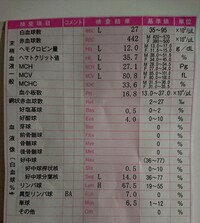 検査項目 コメント 検査結果 基準値 単位
白血球数 L 27 35~95 ×10²/μL
赤血球数 442 ×10⁴/μL
ヘモグロビン量 L 12.0 g/dL
ヘマトクリット値 L 35.7 %
MCH 27.1 Pg
MCV L 80.8 fL
MCHC 33.6 %
血小板数 16.8 13.0~37.0 ×10⁴/μL
網状赤血球数 2~27 ‰
好塩基球 0.5 0~2 %
好酸球 4.0 0~10 %
芽球 %
前骨髄球 %
骨髄球 %
後骨髄球 %
好中球 (36~77) %
好中球桿状核 0.5 0~ %
好中球分葉核 L 14.0 (36~77) %
リンパ球 H 67.5 19~55 %
異型リンパ球 BA 7.0 0~ %
単球 6.5 0~12 %
その他 0~ %